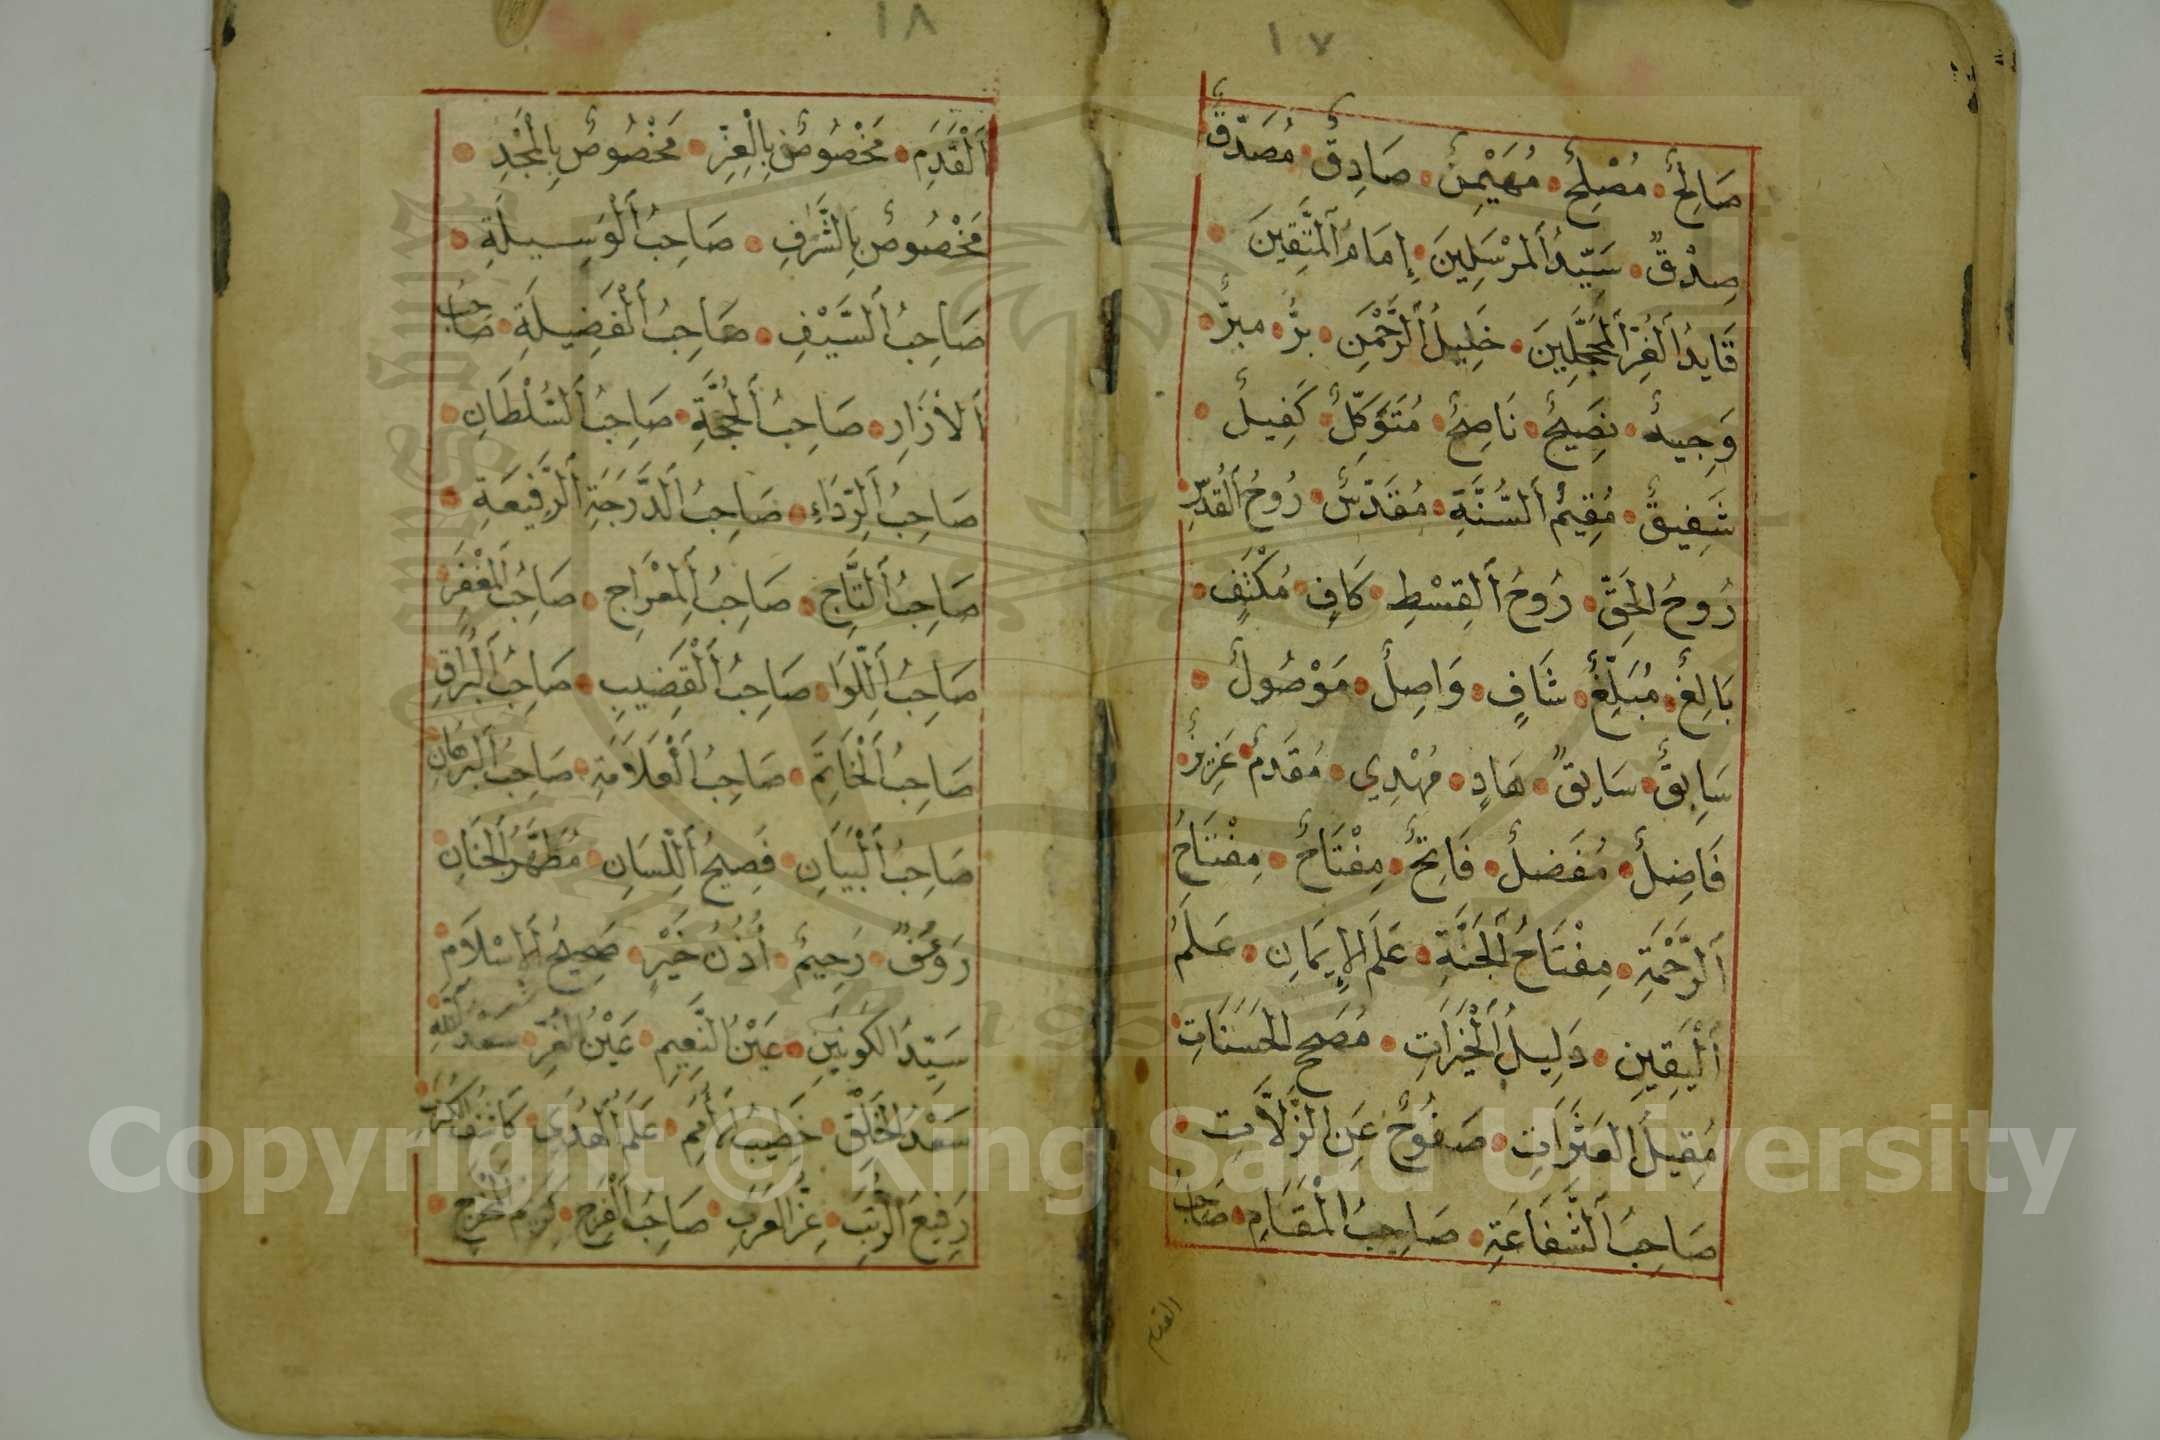 ١٧
صَالِحٌ مُصْلِحٌ مُهَيْمِنٌ صَادِقٌ مُصَدَّقٌ
صِدْقٌ سَيِّدُ الْمُرْسَلِينَ إِمَامُ الْمُتَّقِينَ
قَايِدُ الْغُرِّ الْمُحَجَّلِينَ خَلِيلُ الرَّحْمٰنِ بَرٌّ مبَرٌّ
وَجِيهٌ نَصِيحٌ نَاصِحٌ مُتَوَكِّلٌ كَفِيلٌ
شَفِيقٌ مُقِيمُ السُّنَّةِ مُقَدَّسٌ رُوحُ الْقُدُسِ
رُوحُ الْحَقِّ رُوحُ الْقِسْطِ كَافٍ مُكْتَفٍ
بَالِغٌ مُبَلِّغٌ شَافٍ وَاصِلٌ مَوْصُولٌ
سَابِقٌ سَايِقٌ هَادٍ مُهْدِي مُقَدَّمٌ عَزِيزٌ
فَاضِلٌ مُفَضَّلٌ فَاتِحٌ مِفْتَاحٌ مِفْتَاحُ
الرَّحْمَةِ مِفْتَاحُ الْجَنَّةِ عَلَمُ الْإِيمَانِ عَلَمُ
الْيَقِينِ دَلِيلُ الْخَيْرَاتِ مُصَحِّحُ الْحَسَنَاتِ
مُقِيلُ الْعَثَرَاتِ صَفُوحٌ عَنِ الزَّلَّاتِ
صَاحِبُ الشَّفَاعَةِ صَاحِبُ الْمَقَامِ صَاحِبُ
القدم
١٨
الْقَدَمِ مَخْصُوصٌ بِالْعِزِّ مَخْصُوصٌ بِالْمَجْدِ
مَخْصُوصٌ بِالشَّرَفِ صَاحِبُ الْوَسِيلَةِ
صَاحِبُ السَّيْفِ صَاحِبُ الْفَضِيلَةِ صَاحِبُ
الْأَزَارِ صَاحِبُ الْحُجَّةِ صَاحِبُ السُّلْطَانِ
صَاحِبُ الرِّدَاءِ صَاحِبُ الدَّرَجَةِ الرَّفِيعَةِ
صَاحِبُ التَّاجِ صَاحِبُ الْمِعْرَاجِ صَاحِبُ الْمِغْفَرِ
صَاحِبُ اللِّوَا صَاحِبُ الْقَضِيبِ صَاحِبُ الْبُرَاقِ
صَاحِبُ الْخَاتَمِ صَاحِبُ الْعَلَامَةِ صَاحِبُ الْبُرْهَانِ
صَاحِبُ الْبَيَانِ فَصِيحُ اللِّسَانِ مُطَهَّرُ الْجَنَانِ
رَؤُفٌ رَحِيمٌ أُذُنُ خَيْرٍ صَحِيحُ الْإِسْلَامِ
سَيِّدُ الْكَوْنَيْنِ عَيْنُ النَّعِيمِ عَيْنُ الْغُرِّ سَعْدُ اللهِ
سَعْدُ الْخَلْقِ خَطِيبُ الْأُمَمِ عَلَمُ الْهُدَى كَاشِفُ الْكُرَبِ
رَفِيعُ الرُّتَبِ عِزُّ الْعَرَبِ صَاحِبُ الْفَرَجِ كَرِيمُ الْمَخْرَجِ
Copyright © King Saud University